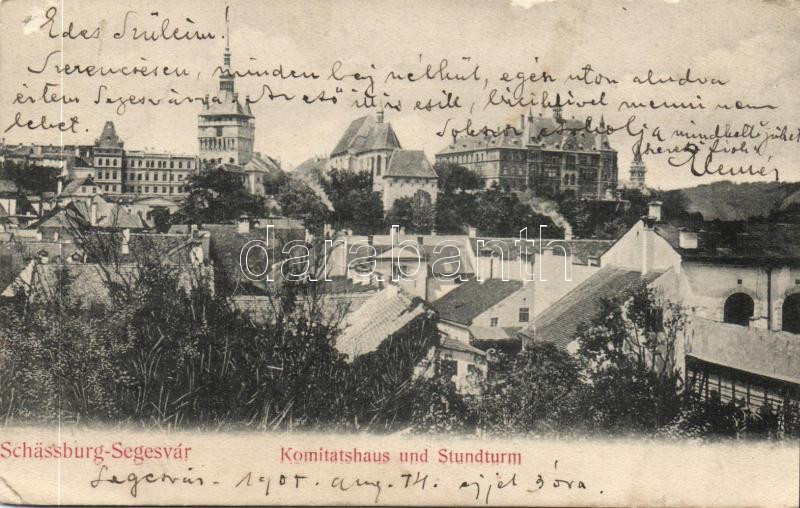 Édes Szüleim.
Szerencsésen, minden baj nélkül, egész uton aludva
értem Segesvárra. Az eső itt is esik, biciklivel menni nem
lehet.
Sokszor csókolj a mindkettőjüket
szerető fiok
Elemér
darabanth
Schässburg-Segesvár
Komitatshaus und Stundturm
Segesvár 1905 aug. 14. éjjel 3 óra.